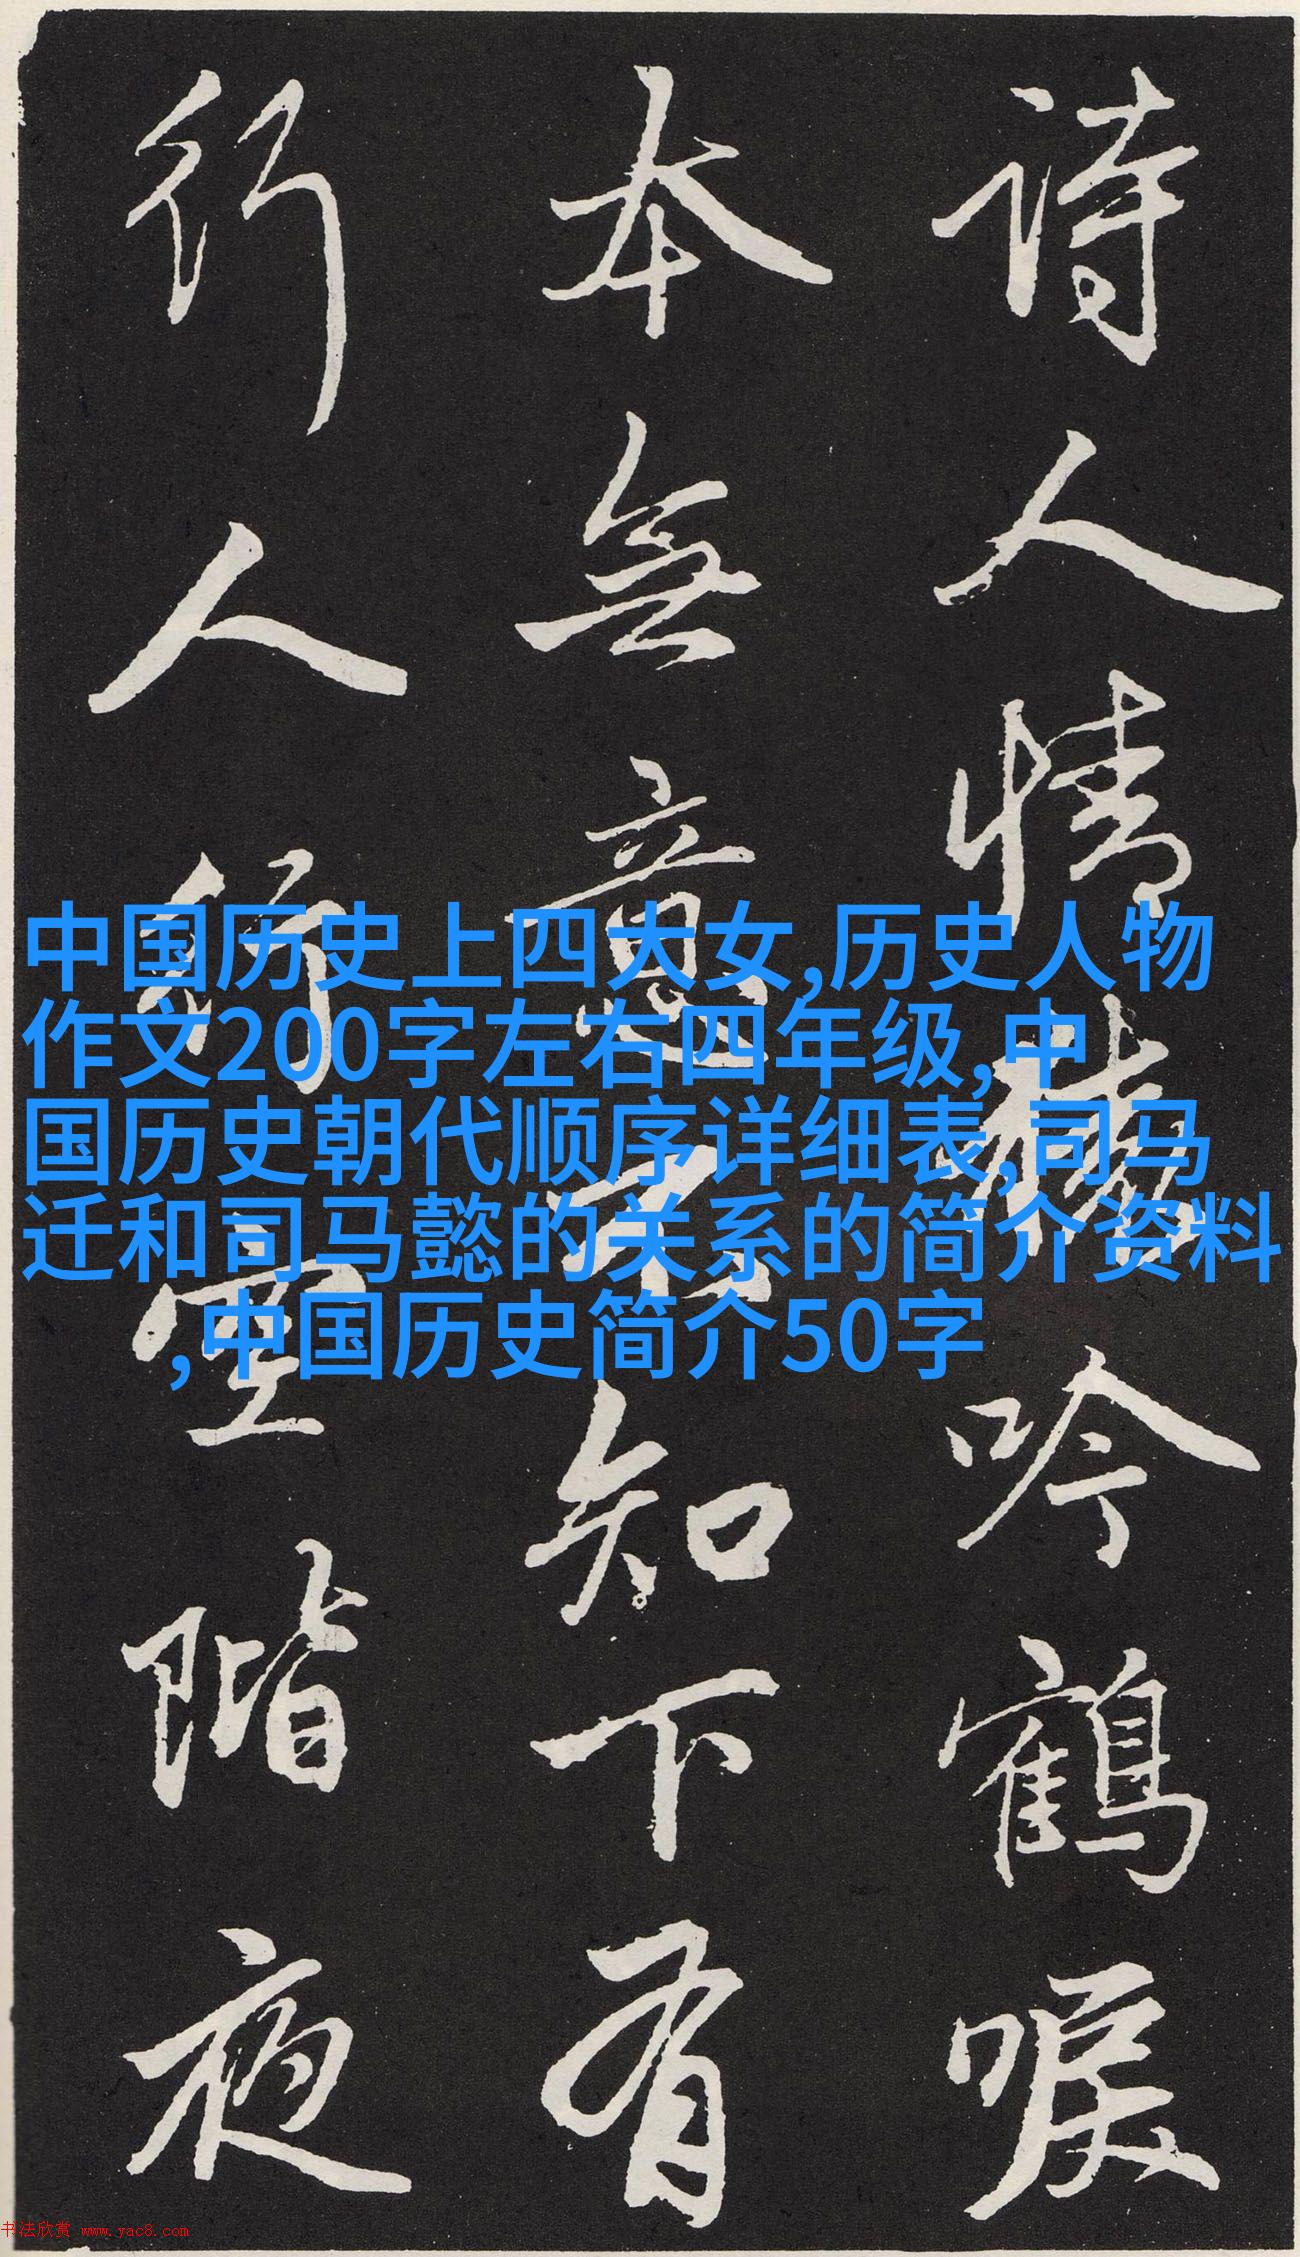 诗人情癡吟鶴唳
本無意不知下有
行人行空階夜
中国历史上四大女,历史人物
作文200字左右四年级,中
国历史朝代顺序详细表,司马
迁和司马懿的关系的简介资料
,中国历史简介50字
书法欣赏 www.yac8.com